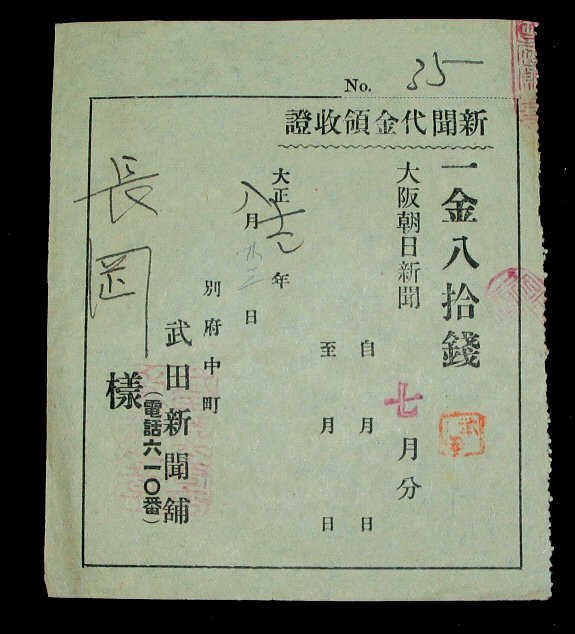 No. 35
新聞代金領收證
一金八拾錢
大阪朝日新聞
七月分
自 月 日
至 月 日
大正 年
八月 日
別府中町
武田新聞舖
(電話六一〇番)
長岡
樣